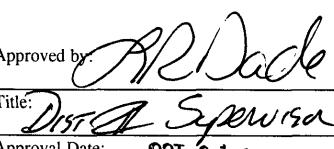 Approved by: RR Dade
Title: Dist Supervisor
Approval Date: OCT